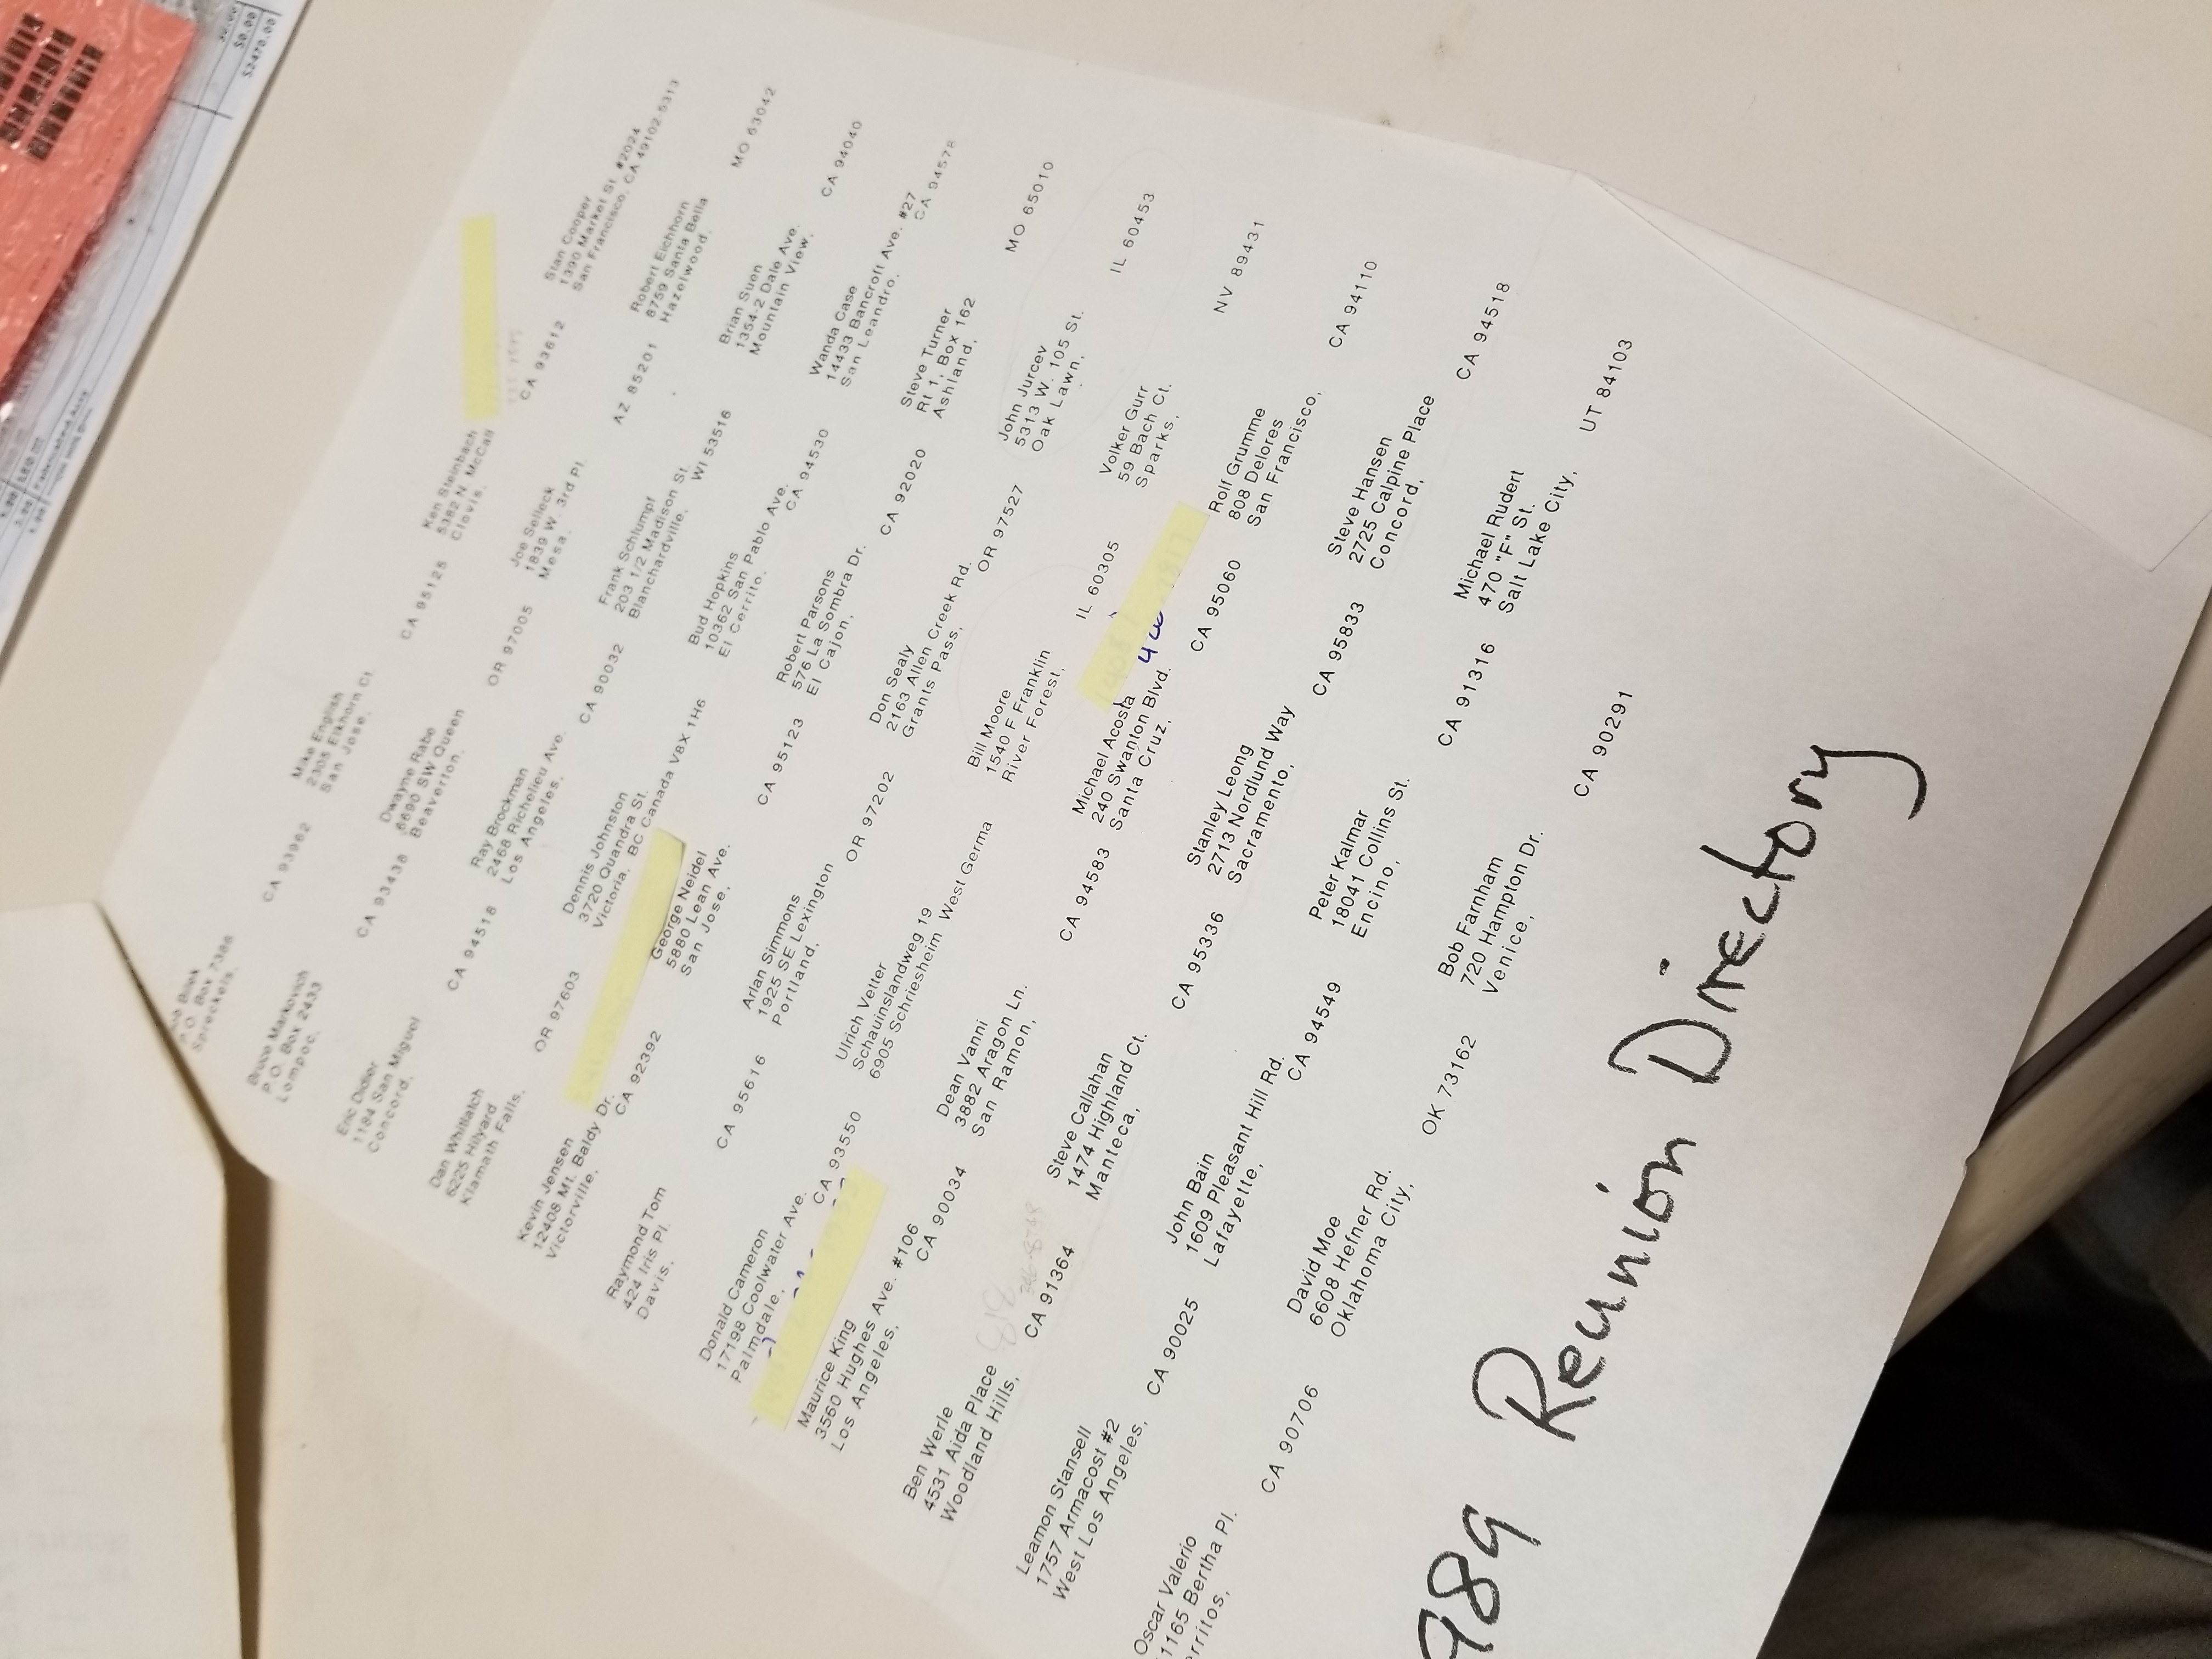 P.O. Box 7386
Spreckels, CA 93962
Mike English
2305 Elkhorn Ct
San Jose, CA 95125
Ken Steinbach
5382 N. McCall
Clovis, CA 93612
Stan Cooper
1390 Market St. #2024
San Francisco, CA 49102-5313
Bruce Markovich
P.O. Box 2433
Lompoc, CA 93438
Dwayne Rabe
6690 SW Queen
Beaverton, OR 97005
Joe Selleck
1839 W. 3rd Pl.
Mesa, AZ 85201
Robert Eichhorn
8759 Santa Bella
Hazelwood, MO 63042
Eric Didier
1184 San Miguel
Concord, CA 94518
Ray Brockman
2468 Richelieu Ave.
Los Angeles, CA 90032
Frank Schlumpf
203 1/2 Madison St.
Blanchardville, WI 53516
Brian Suen
1354-2 Dale Ave.
Mountain View, CA 94040
Dan Whitlatch
6225 Hilyard
Klamath Falls, OR 97603
Dennis Johnston
3720 Quandra St.
Victoria, BC Canada V8X 1H6
Bud Hopkins
10362 San Pablo Ave.
El Cerrito, CA 94530
Wanda Case
14433 Bancroft Ave. #27
San Leandro, CA 94578
Kevin Jensen
12408 Mt. Baldy Dr.
Victorville, CA 92392
George Neidel
5880 Lean Ave.
San Jose, CA 95123
Robert Parsons
576 La Sombra Dr.
El Cajon, CA 92020
Steve Turner
Rt 1, Box 162
Ashland, MO 65010
Raymond Tom
424 Iris Pl.
Davis, CA 95616
Arlan Simmons
1925 SE Lexington
Portland, OR 97202
Don Sealy
2163 Allen Creek Rd.
Grants Pass, OR 97527
John Jurcev
5313 W. 105 St.
Oak Lawn, IL 60453
Donald Cameron
17198 Coolwater Ave.
Palmdale, CA 93550
Ulrich Vetter
Schauinslandweg 19
6905 Schriesheim West Germa
Bill Moore
1540 F Franklin
River Forest, IL 60305
Volker Gurr
59 Bach Ct.
Sparks, NV 89431
Maurice King
3560 Hughes Ave. #106
Los Angeles, CA 90034
Dean Vanni
3882 Aragon Ln.
San Ramon, CA 94583
Michael Acosta
240 Swanton Blvd.
Santa Cruz, CA 95060
Rolf Grumme
808 Delores
San Francisco, CA 94110
Ben Werle
4531 Aida Place 818
Woodland Hills, CA 91364
Steve Callahan
1474 Highland Ct.
Manteca, CA 95336
Stanley Leong
2713 Nordlund Way
Sacramento, CA 95833
Steve Hansen
2725 Calpine Place
Concord, CA 94518
Leamon Stansell
1757 Armacost #2
West Los Angeles, CA 90025
John Bain
1609 Pleasant Hill Rd.
Lafayette, CA 94549
Peter Kalmar
18041 Collins St.
Encino, CA 91316
Michael Rudert
470 "F" St.
Salt Lake City, UT 84103
Oscar Valerio
1165 Bertha Pl.
rritos, CA 90706
David Moe
6608 Hefner Rd.
Oklahoma City, OK 73162
Bob Farnham
720 Hampton Dr.
Venice, CA 90291
989 Reunion Directory
$0.00
$2470.00